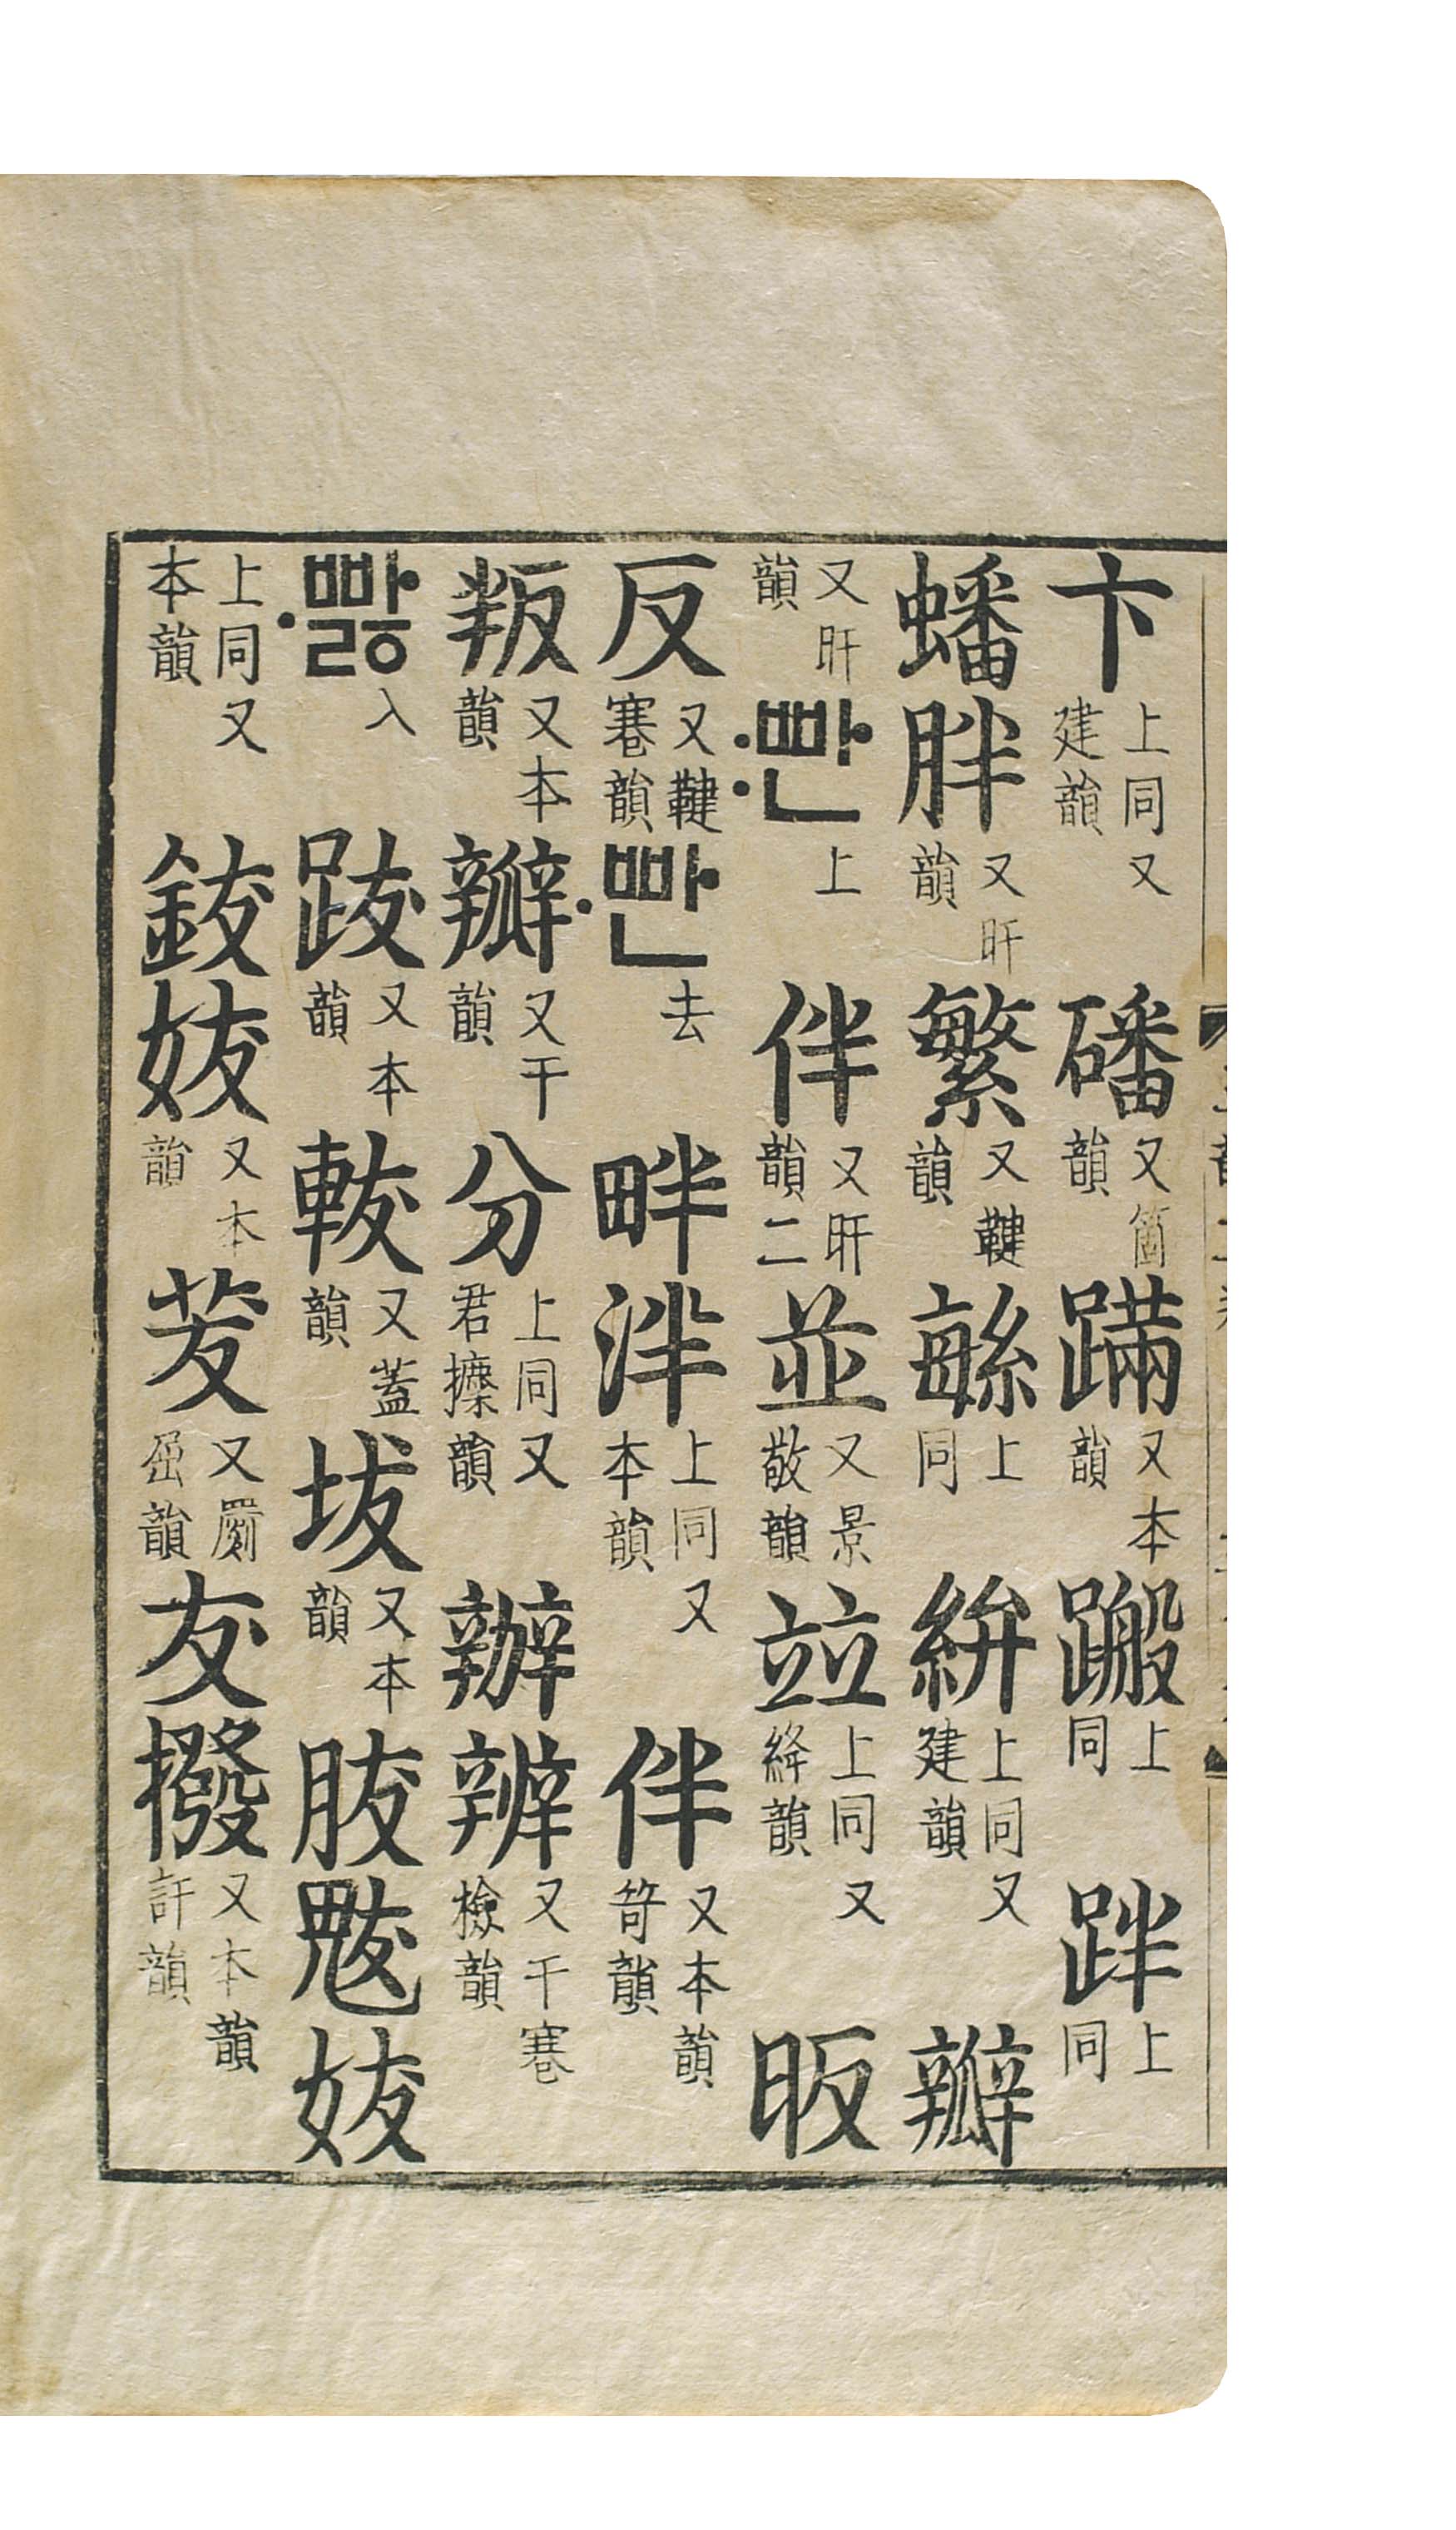 卞上同又建韻磻又箇韻蹣又本韻蹳上同跘上同
蟠胖又旰韻繁又鞬韻緐上同絣上同又建韻瓣
又旰韻〯빤上伴又旰韻二並又景敬韻竝上同又絳韻昄
反又鞬寋韻〮빤去畔泮上同又本韻伴又本韻笴韻
叛又本韻瓣又干韻分上同又君攈韻辦辨又干寋檢韻
〮빯入跋又本韻軷又蓋韻坺又本韻胈魃妭
上同又本韻鈸妭又本韻茇又罽屈韻犮撥又本韻訐韻